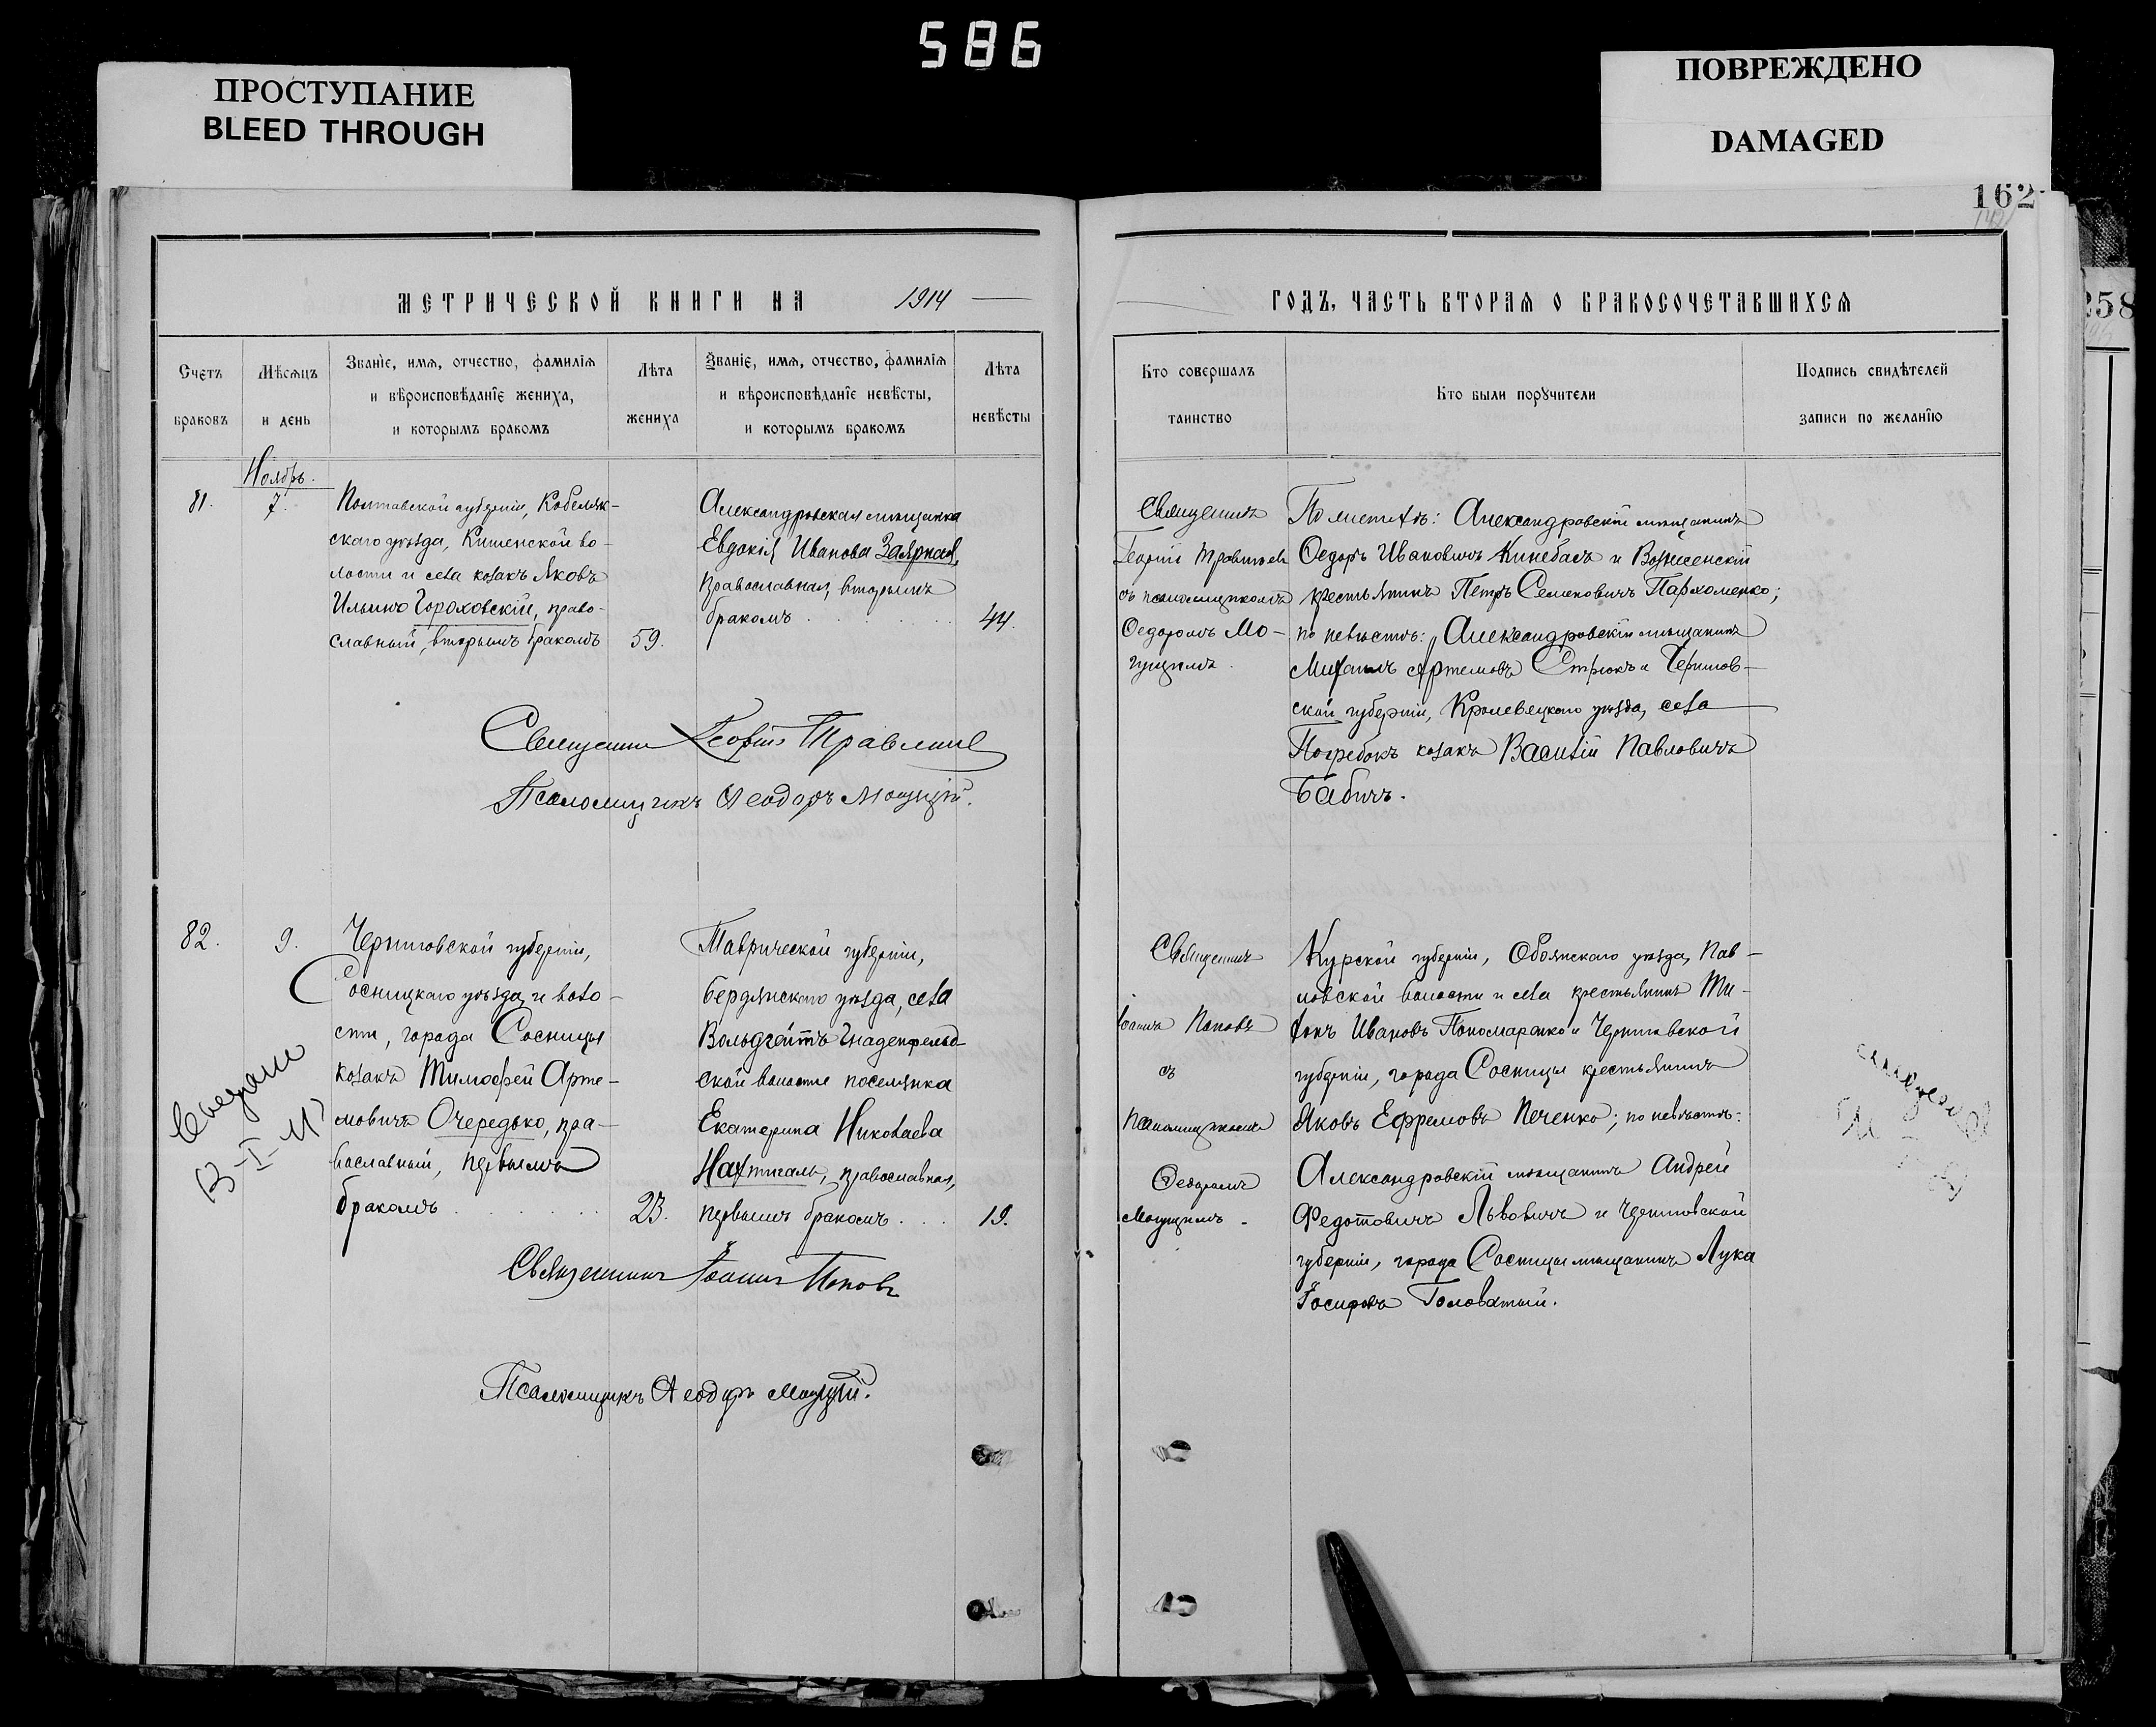 586
ПРОСТУПАНИЕ
BLEED THROUGH
ПОВРЕЖДЕНО
DAMAGED
162
258
МЕТРИЧЕСКОЙ КНИГИ НА 1914
ГОДЪ, ЧАСТЬ ВТОРАЯ О БРАКОСОЧЕТАВШИХСЯ
Счетъ
браковъ
Мѣсяцъ
и день
Званіе, имя, отчество, фамилія
и вѣроисповѣданіе жениха,
и которымъ бракомъ
Лѣта
жениха
Званіе, имя, отчество, фамилія
и вѣроисповѣданіе невѣсты,
и которымъ бракомъ
Лѣта
невѣсты
Кто совершалъ
таинство
Кто были поручители
Подпись свидѣтелей
записи по желанію
Ноябрь.
81.
7.
Полтавской губерніи, Кобеляк-
скаго уѣзда, Кишенской во-
лости и села козакъ Яковъ
Ильинъ Гороховскій, право-
славный, вторымъ бракомъ
59.
Александровская мѣщанка
Евдокія Иванова Заярная,
православная, вторымъ
бракомъ
44.
Священникъ
Георгій
съ псаломщикомъ
Ѳедоромъ Мо-
щицкимъ.
По женихѣ: Александровскій мѣщанинъ
Ѳедоръ Ивановичъ Кинебасъ и Вознесенскій
крестьянинъ Петръ Семеновичъ Пархоменко;
по невѣстѣ: Александровскій мѣщанинъ
Михаилъ Артемовъ Стрюкъ и Чернигов-
ской губерніи, Кролевецкаго уѣзда, села
Погребокъ козакъ Василій Павловичъ
Бабичъ.
Священникъ Георгій
Псаломщикъ Ѳеодоръ
82.
9.
Черниговской губерніи,
Сосницкаго уѣзда и воло-
сти, города Сосницы
козакъ Тимофей Арте-
мовичъ Очередько, пра-
вославный, первымъ
бракомъ
23.
Таврической губерніи,
Бердянскаго уѣзда, села
Вольдгеймъ Гнаденфельд-
ской волости поселянка
Екатерина Николаева
Нахтигаль, православная,
первымъ бракомъ
19.
Священникъ
Іоаннъ Поповъ
съ
псаломщикомъ
Ѳедоромъ
Курской губерніи, Обоянскаго уѣзда, Пав-
ловской волости и села крестьянинъ Ти-
хонъ Ивановъ Пономаренко и Черниговской
губерніи, города Сосницы крестьянинъ
Яковъ Ефремовъ Печенко; по невѣстѣ:
Александровскій мѣщанинъ Андрей
Федотовичъ Львовичъ и Черниговской
губерніи, города Сосницы мѣщанинъ Лука
Іосифовъ Головатый.
Священникъ Іоаннъ Поповъ
Псаломщикъ Ѳеодоръ